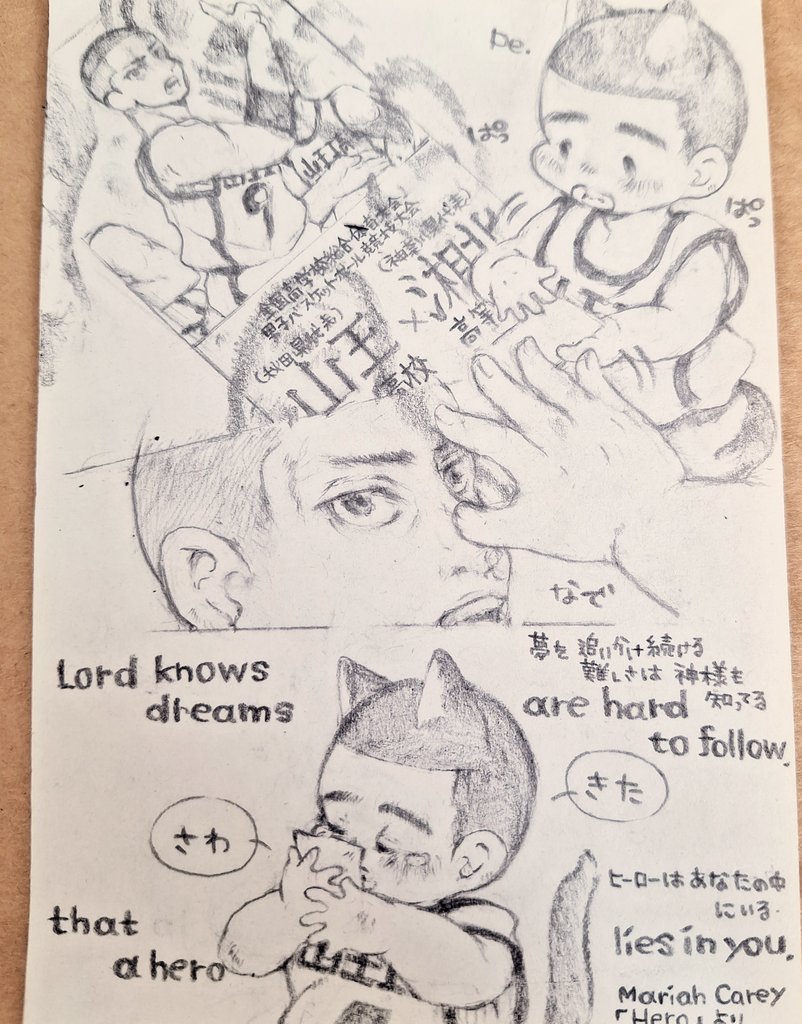 pe.
ぱっ
ぱっ
9
山王
全国高等学校総合体育大会
男子バスケットボール競技大会
(秋田県代表)
山王
高校
×
(神奈川県代表)
湘北
高等
なで
Lord knows
dreams
夢を追いかけ続ける
難しさは神様も
知ってる
are hard
to follow.
さわ
きた
山王
that
a hero
ヒーローはあなたの中
にいる
lies in you.
Mariah Carey
「Hero」より